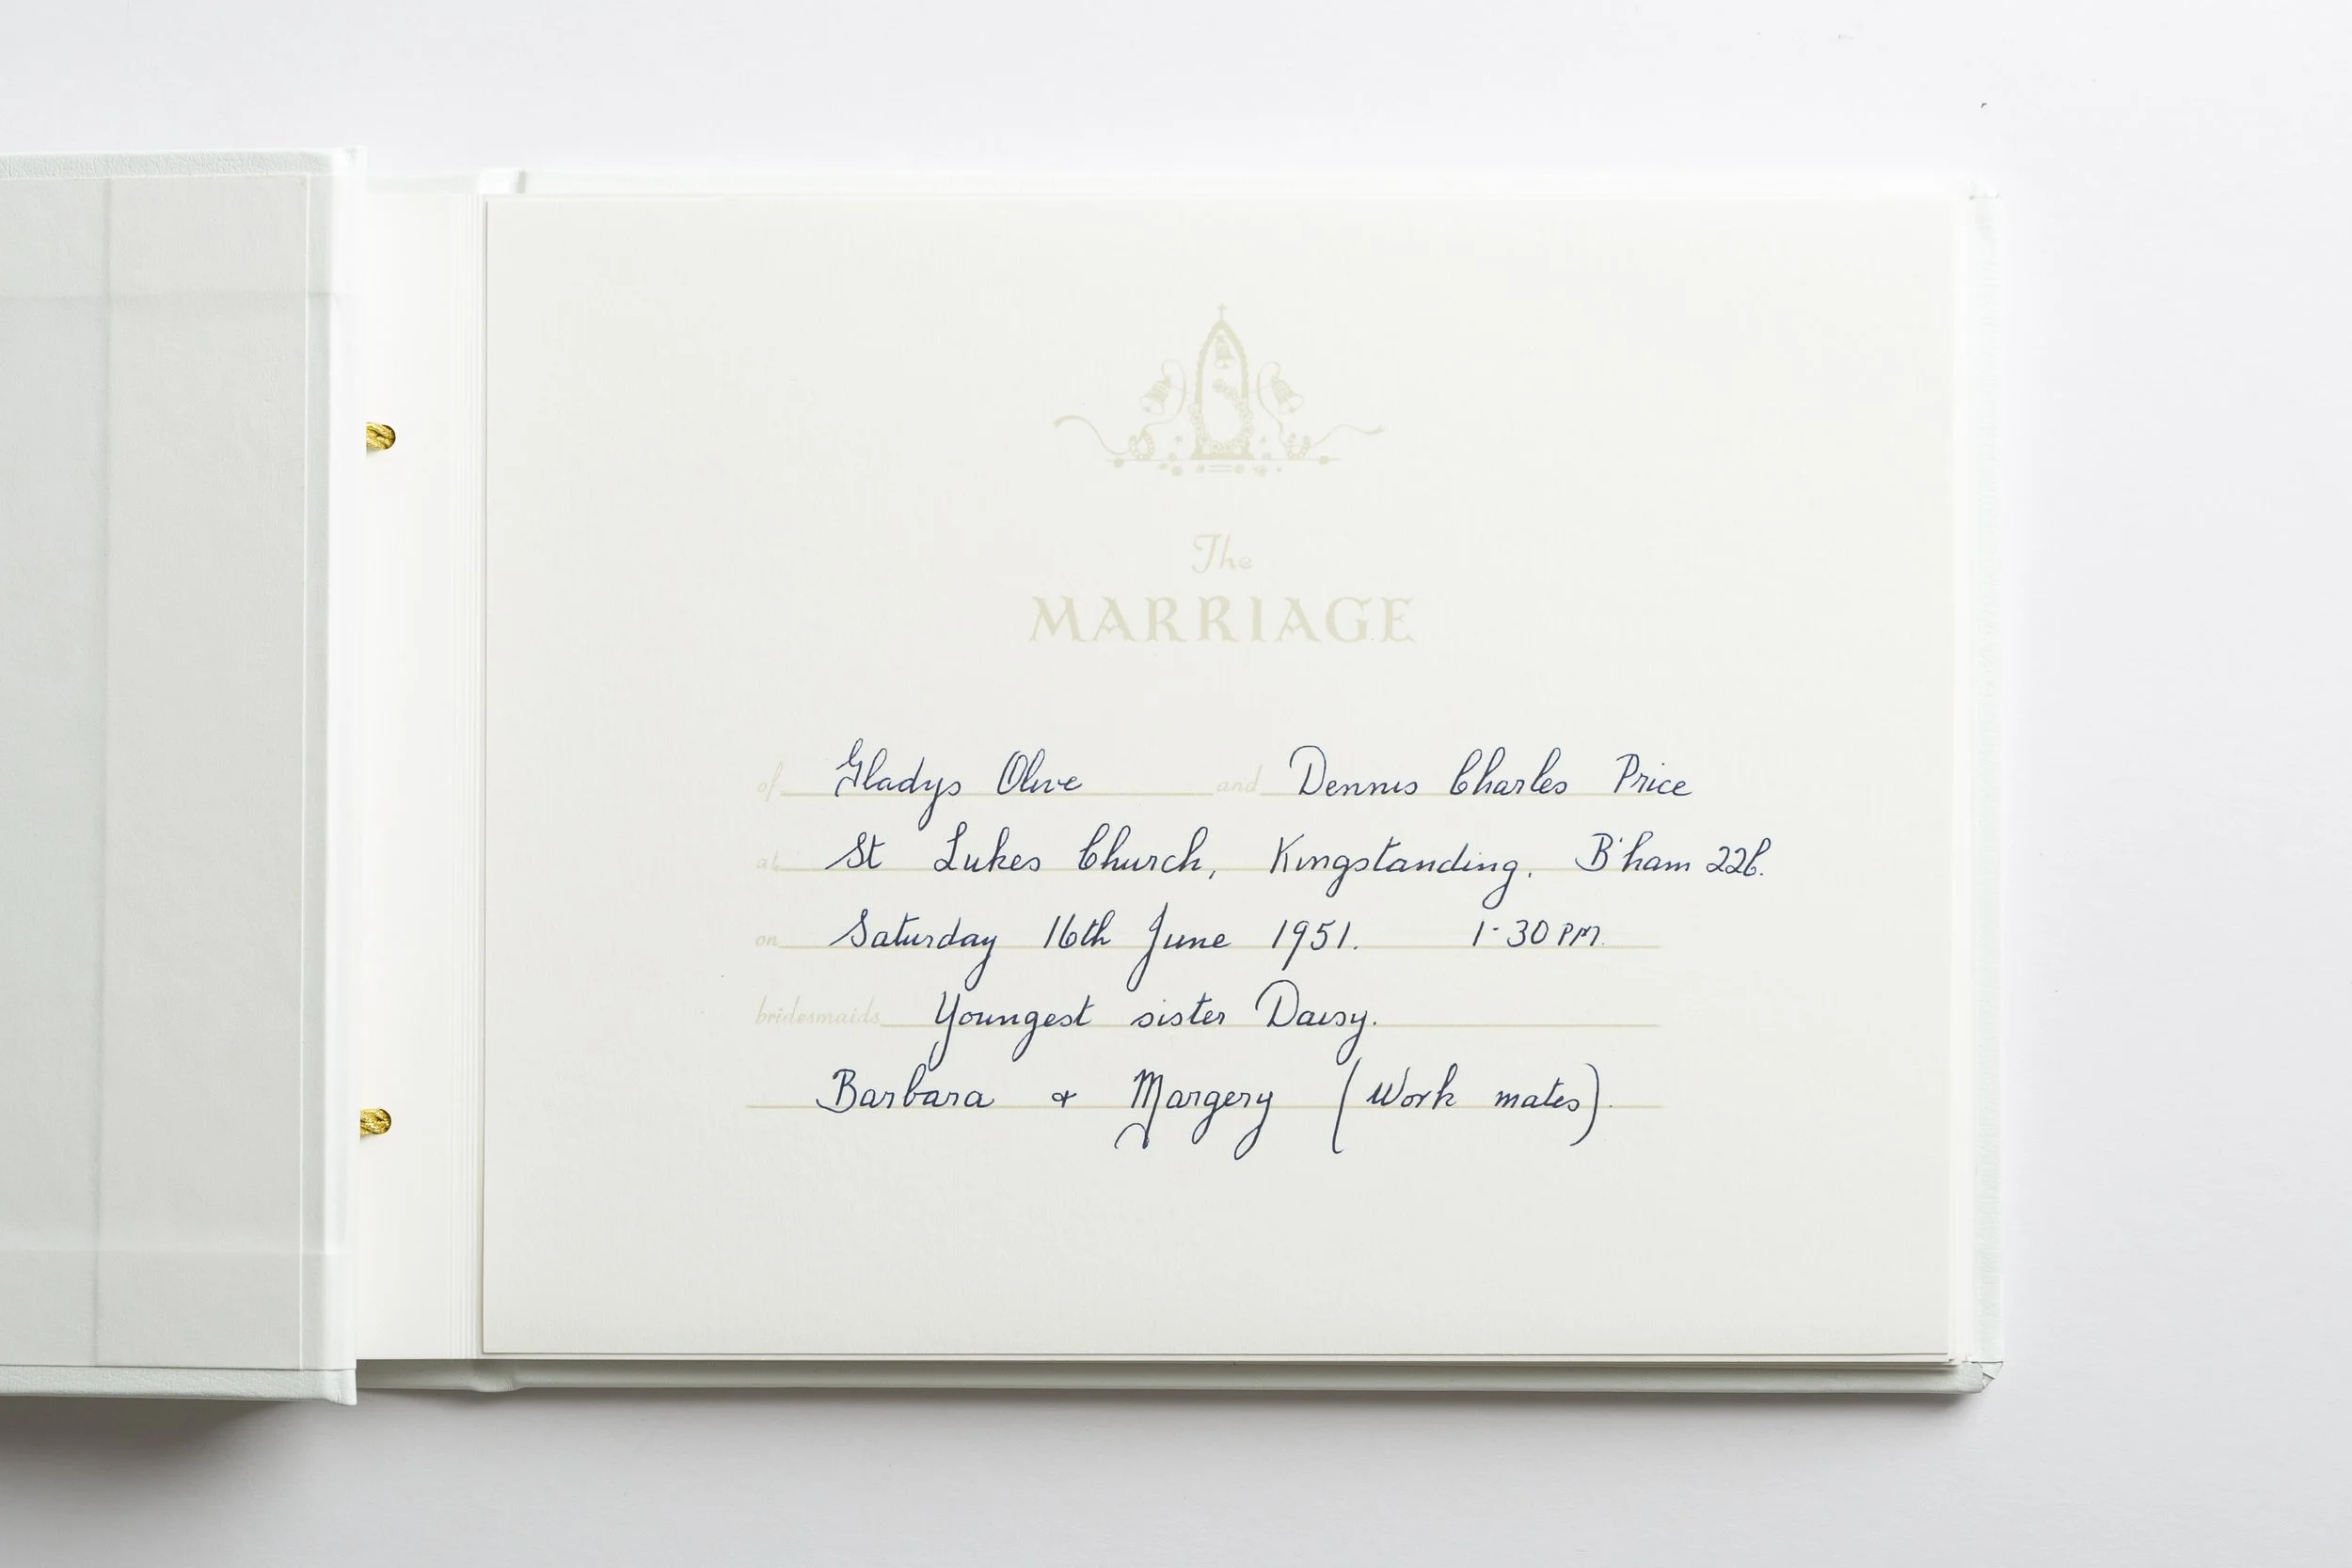 The
MARRIAGE
of Gladys Olive and Dennis Charles Price
at St Lukes Church, Kingstanding. B'ham 22b.
on Saturday 16th June 1951. 1-30 PM.
bridesmaids Youngest sister Daisy.
Barbara & Margery (Work mates).